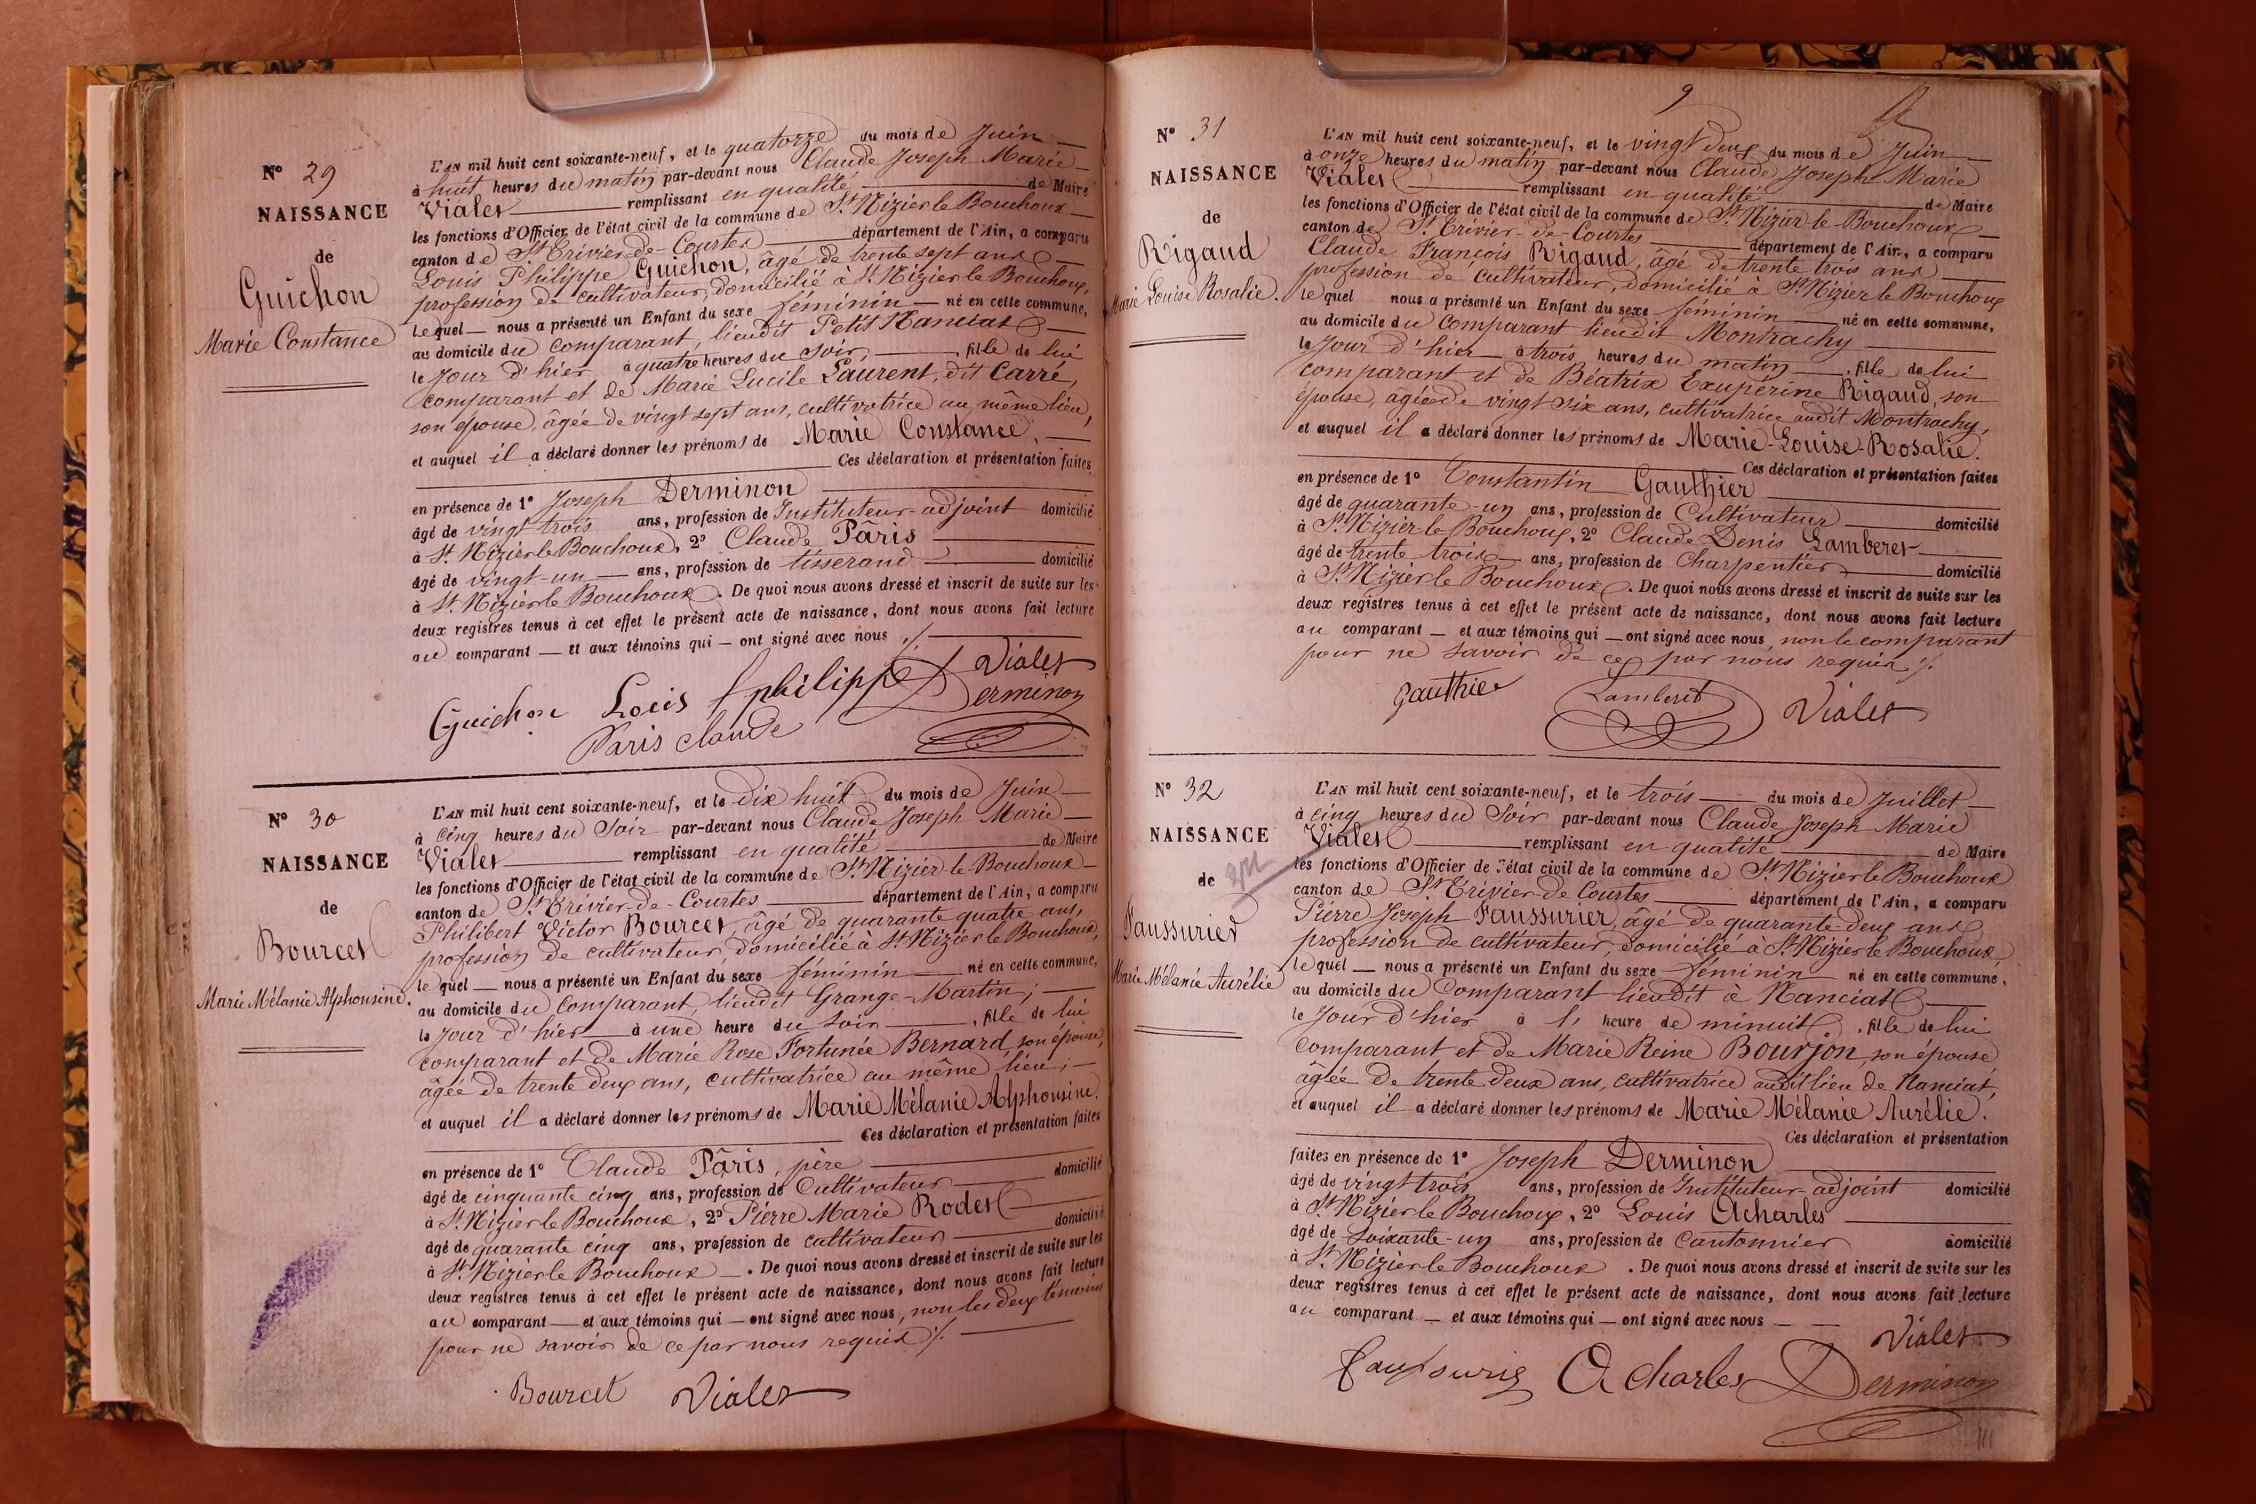 N° 29
NAISSANCE
de
Guichon
Marie Constance
L'AN mil huit cent soixante-neuf, et le quatorze du mois de Juin
à huit heures du matin par-devant nous Claude Joseph Marie
Vialet remplissant en qualité de Maire
les fonctions d'Officier de l'état civil de la commune de St Nizier le Bouchoux
canton de St Trivier-de-Courtes département de l'Ain, a comparu
Louis Philippe Guichon, âgé de trente sept ans
profession de cultivateur, domicilié à St Nizier le Bouchoux,
lequel nous a présenté un Enfant du sexe féminin né en cette commune,
au domicile du comparant, lieudit Petit Nanciat
le jour d'hier à quatre heures du soir, fille de lui
comparant et de Marie Lucile Laurent, dit Carré,
son épouse, âgée de vingt sept ans, cultivatrice au même lieu,
et auquel il a déclaré donner les prénoms de Marie Constance,
Ces déclaration et présentation faites
en présence de 1° Joseph Derminon
âgé de vingt trois ans, profession de Instituteur-adjoint domicilié
à St Nizier le Bouchoux, 2° Claude Pâris
âgé de vingt-un ans, profession de tisserand domicilié
à St Nizier le Bouchoux. De quoi nous avons dressé et inscrit de suite sur les
deux registres tenus à cet effet le présent acte de naissance, dont nous avons fait lecture
au comparant et aux témoins qui ont signé avec nous ./.
Guichon Louis philippe Vialet
Paris claude Derminon
N° 30
NAISSANCE
de
Bourcet
Marie Mélanie Alphonsine.
L'AN mil huit cent soixante-neuf, et le dix huit du mois de Juin
à cinq heures du Soir par-devant nous Claude Joseph Marie
Vialet remplissant en qualité de Maire
les fonctions d'Officier de l'état civil de la commune de St Nizier-le-Bouchoux
canton de St Trivier-de-Courtes département de l'Ain, a comparu
Philibert Victor Bourcet, âgé de quarante quatre ans,
profession de cultivateur, domicilié à St Nizier le Bouchoux,
lequel nous a présenté un Enfant du sexe féminin né en cette commune,
au domicile du comparant, lieudit Grange-Martin;
le jour d'hier à une heure du soir, fille de lui
comparant et de Marie Rose Fortunée Bernard, son épouse,
âgée de trente deux ans, cultivatrice au même lieu;
et auquel il a déclaré donner les prénoms de Marie Mélanie Alphonsine.
Ces déclaration et présentation faites
en présence de 1° Claude Pâris, père
âgé de cinquante cinq ans, profession de Cultivateur domicilié
à St Nizier le Bouchoux, 2° Pierre Marie Rodet
âgé de quarante cinq ans, profession de cultivateur domicilié
à St Nizier le Bouchoux. De quoi nous avons dressé et inscrit de suite sur les
deux registres tenus à cet effet le présent acte de naissance, dont nous avons fait lecture
au comparant et aux témoins qui ont signé avec nous, non les deux témoins
pour ne savoir de ce par nous requis ./.
Bourcet Vialet
9
N° 31
NAISSANCE
de
Rigaud
Marie Louise Rosalie.
L'AN mil huit cent soixante-neuf, et le vingt deux du mois de Juin
à onze heures du matin par-devant nous Claude Joseph Marie
Vialet remplissant en qualité de Maire
les fonctions d'Officier de l'état civil de la commune de St Nizier-le-Bouchoux
canton de St Trivier-de-Courtes département de l'Ain, a comparu
Claude François Rigaud, âgé de trente trois ans
profession de cultivateur, domicilié à St Nizier le Bouchoux
lequel nous a présenté un Enfant du sexe féminin né en cette commune,
au domicile du comparant lieudit Montrachy
le jour d'hier à trois heures du matin, fille de lui
comparant et de Béatrix Exupérine Rigaud, son
épouse, agée de vingt six ans, cultivatrice audit Montrachy,
et auquel il a déclaré donner les prénoms de Marie-Louise-Rosalie.
Ces déclaration et présentation faites
en présence de 1° Constantin Gauthier
âgé de quarante-un ans, profession de Cultivateur domicilié
à St Nizier-le Bouchoux, 2° Claude Denis Lamberet
âgé de trente trois ans, profession de Charpentier domicilié
à St Nizier le Bouchoux. De quoi nous avons dressé et inscrit de suite sur les
deux registres tenus à cet effet le présent acte de naissance, dont nous avons fait lecture
au comparant et aux témoins qui ont signé avec nous, non le comparant
pour ne savoir de ce par nous requis ./.
Gauthier Lamberet Vialet
N° 32
NAISSANCE
de
Faussurier
Marie Mélanie Aurélie
L'AN mil huit cent soixante-neuf, et le trois du mois de Juillet
à cinq heures du Soir par-devant nous Claude Joseph Marie
Vialet remplissant en qualité de Maire
les fonctions d'Officier de l'état civil de la commune de St Nizier le Bouchoux
canton de St Trivier-de Courtes département de l'Ain, a comparu
Pierre Joseph Faussurier, âgé de quarante-deux ans
profession de cultivateur, domicilié à St Nizier le Bouchoux
lequel nous a présenté un Enfant du sexe féminin né en cette commune,
au domicile du Comparant lieudit à Nanciat
le Jour d'hier à l' heure de minuit, fille de lui
comparant et de Marie Reine Bourjon, son épouse
âgée de trente deux ans, cultivatrice audit lieu de Nanciat,
et auquel il a déclaré donner les prénoms de Marie Mélanie Aurélie.
Ces déclaration et présentation
faites en présence de 1° Joseph Derminon
âgé de vingt trois ans, profession de Instituteur-adjoint domicilié
à St Nizier le Bouchoux, 2° Louis Acharles
âgé de Soixante-un ans, profession de Cantonnier domicilié
à St Nizier le Bouchoux. De quoi nous avons dressé et inscrit de suite sur les
deux registres tenus à cet effet le présent acte de naissance, dont nous avons fait lecture
au comparant et aux témoins qui ont signé avec nous
Vialet
Acharles Derminon